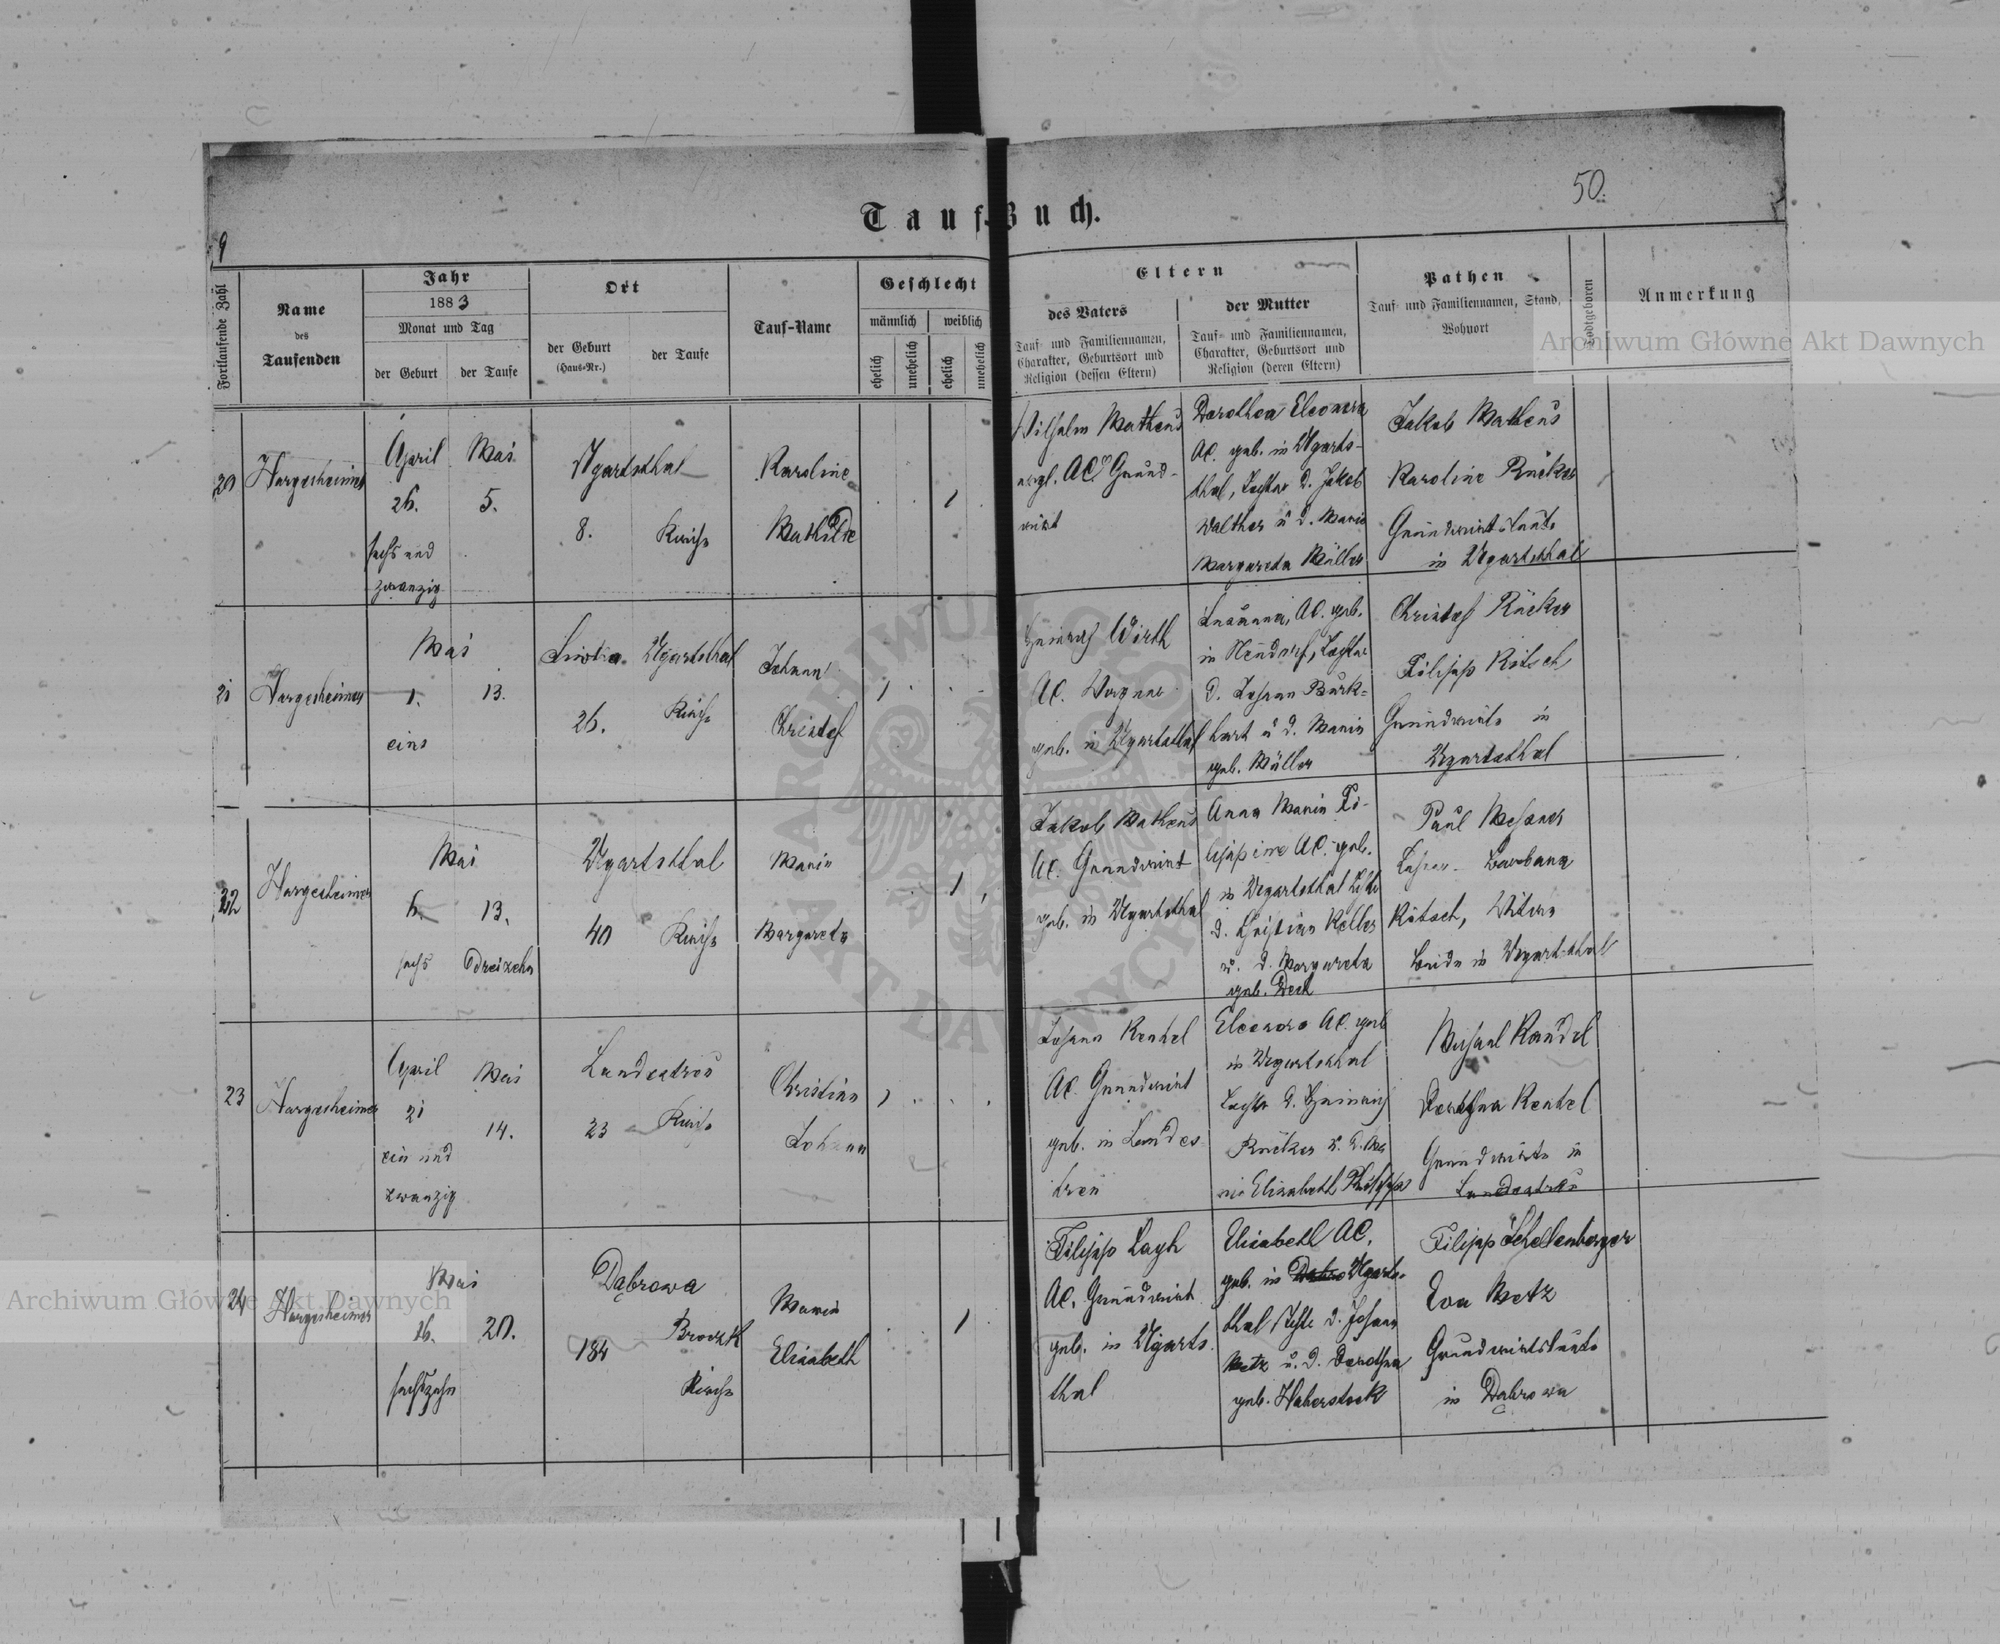 50.
Tauf-Buch.
9
Fortlaufende Zahl
Name
des
Taufenden
Jahr
1883
Monat und Tag
der Geburt
der Taufe
Ort
der Geburt
(Haus-Nr.)
der Taufe
Tauf-Name
Geschlecht
männlich
weiblich
ehelich
unehelich
ehelich
unehelich
Eltern
des Vaters
Tauf- und Familiennamen,
Charakter, Geburtsort und
Religion (dessen Eltern)
der Mutter
Tauf- und Familiennamen,
Charakter, Geburtsort und
Religion (deren Eltern)
Pathen
Tauf- und Familiennamen, Stand,
Wohnort
Todtgeboren
Anmerkung
20
Hargesheimer
April
26.
sechs und
zwanzig
Mai
5.
Ugartsthal
8.
Kirche
Karoline
Mathilde
1
Wilhelm Matheus
evgl. AC. Grund-
wirt
Dorothea Eleonora
AC. geb. in Ugarts-
thal, Tochter d. Jakob
Walther u d. Marie
Margareta Müller
Jakob Matheus
Karoline Rücker
Grundwirtsleute
in Ugartsthal
21
Hargesheimer
Mai
1.
13.
eins
Siwka
26.
Ugartsthal
Kirche
Johann
Christof
1
Heinrich Wirth
AC. Wagner
geb. in Ugartsthal
Susanna, AC. geb.
in Neudorf, Tochter
d. Johann Burk-
hart u d. Maria
geb. Müller
Christof Rücker
Filipp Rötsch
Grundwirte in
Ugartsthal
22
Hargesheimer
Mai
6.
13.
sechs
Dreizehn
Ugartsthal
40
Kirche
Maria
Margareta
1
Jakob Matheus
AC. Grundwirt
geb. in Ugartsthal
Anna Maria
AC. geb.
in Ugartsthal
d. Christian Keller
u. d. Margareta
geb. Deck
Paul Messner
Lehrer Barbara
Rötsch, Witwe
beide in Ugartsthal
23
Hargesheimer
April
21
ein und
zwanzig
Mai
14.
Landestreu
23
Kirche
Christian
Johann
1
Johann Kenkel
AC. Grundwirt
geb. in Landes-
treu
Eleonora AC. geb
in Ugartsthal
Tochter d. Heinrich
Rücker u. d. Ma-
rie Elisabeth Philipps
Michael Kandel
Dorothea Kenkel
Grundwirte in
Landestreu
24
Hargesheimer
Mai
16.
20.
sechszehn
Dąbrowa
184
Kirche
Maria
Elisabeth
1
Filipp Layh
AC. Grundwirt
geb. in Ugarts-
thal
Elisabeth AC.
geb. in Ugarts-
thal Tochter d. Johann
Metz u. d. Dorothea
geb. Haberstock
Filipp Schellenberger
Eva Metz
Grundwirtsleute
in Dąbrowa
Archiwum Główne Akt Dawnych
Archiwum Główne Akt Dawnych
ARCHIWUM GŁÓWNE AKT DAWNYCH